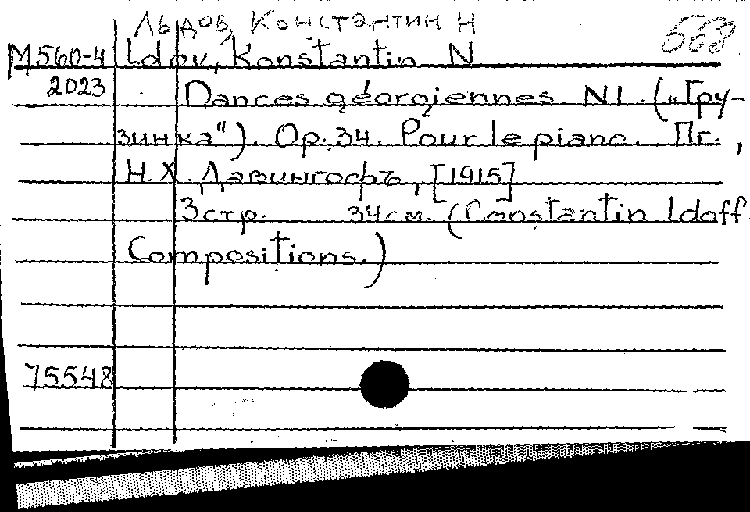 Льдов, Константин Н 568
М560-4 Ldov, Konstantin N
2023 Dances géorgiennes N1. („Гру-
зинка"). Op. 34. Pour le piano. Пг.,
Н.Х. Давингофъ, [1915]
3 стр. 34 см. (Constantin Idoff
Compositions.)
75548